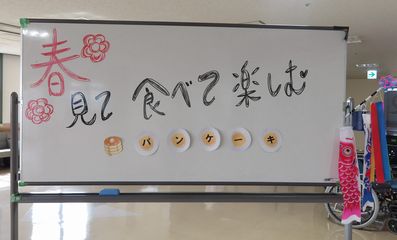 春
見て 食べて 楽しむ
パンケーキ